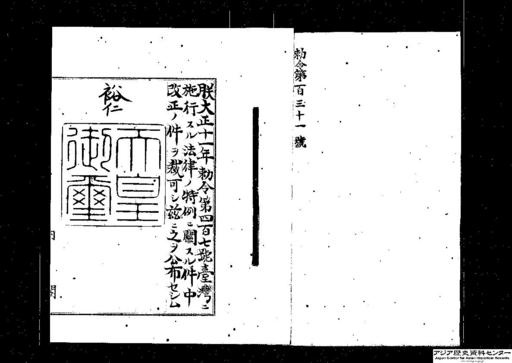 勅令第百三十一號
朕大正十一年勅令第四百七號臺灣ニ
施行スル法律ノ特例ニ關スル件中
改正ノ件ヲ裁可シ茲ニ之ヲ公布セシム
裕仁
天皇
御璽
内閣
アジア歴史資料センター
Japan Center for Asian Historical Records